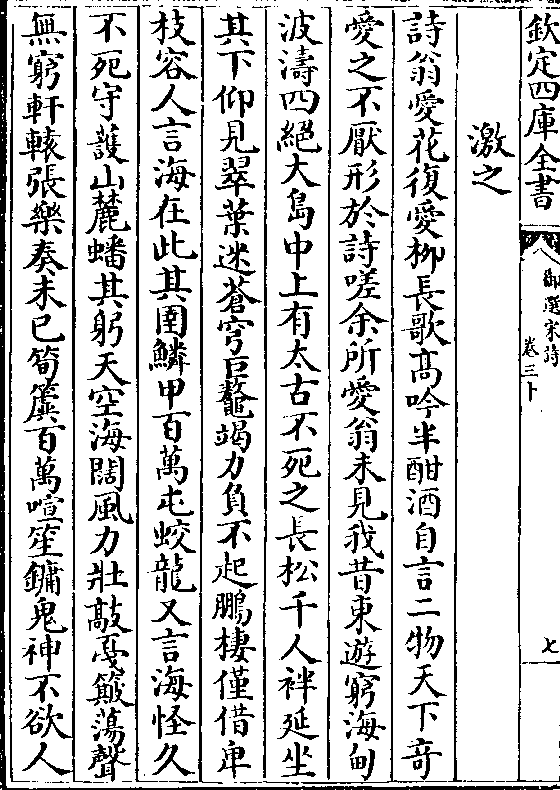 欽定四庫全書
御選宋詩
卷三十
七
激之
詩翁愛花復愛柳長歌高吟半酣酒自言二物天下竒
愛之不厭形於詩嗟余所愛翁未見我昔東遊窮海甸
波濤四絕大島中上有太古不死之長松千人袢延坐
其下仰見翠葉迷蒼穹巨鼇竭力負不起鵬棲僅借单
枝容人言海在此其圉鱗甲百萬屯蛟龍又言海怪久
不死守護山麓蟠其躬天空海闊風力壯敲戛簸蕩聲
無窮軒轅張樂奏未已筍簴百萬喧笙鏞鬼神不欲人